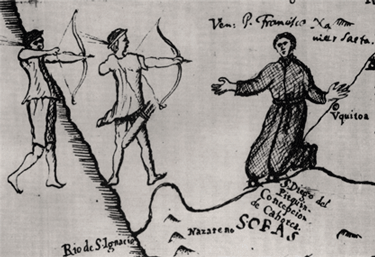 Ven: P. Francisco Xa
uier Saeta.
Vquitoa
S. Diego del
Pitquin
Concepcion
de Caborca
SOBAS
Nazareno
Rio de S. Ignacio